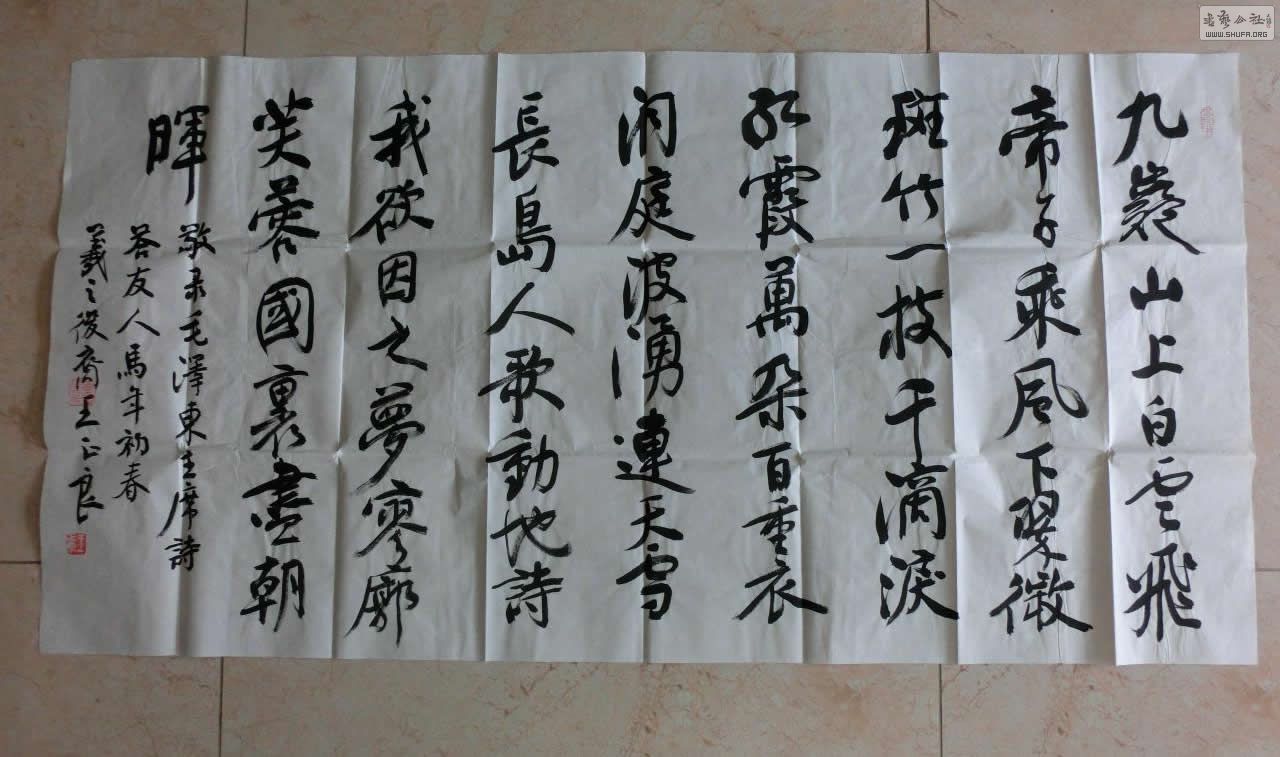 九嶷山上白雲飛
帝子乘风下翠微
斑竹一枝千滴淚
红霞萬朵百重衣
洞庭波湧連天雪
長島人歌動地詩
我欲因之夢寥廓
芙蓉國裏盡朝
暉
敬录毛澤東主席詩
答友人馬年初春
羲之後裔王正良
书艺公社
WWW.SHUFA.ORG